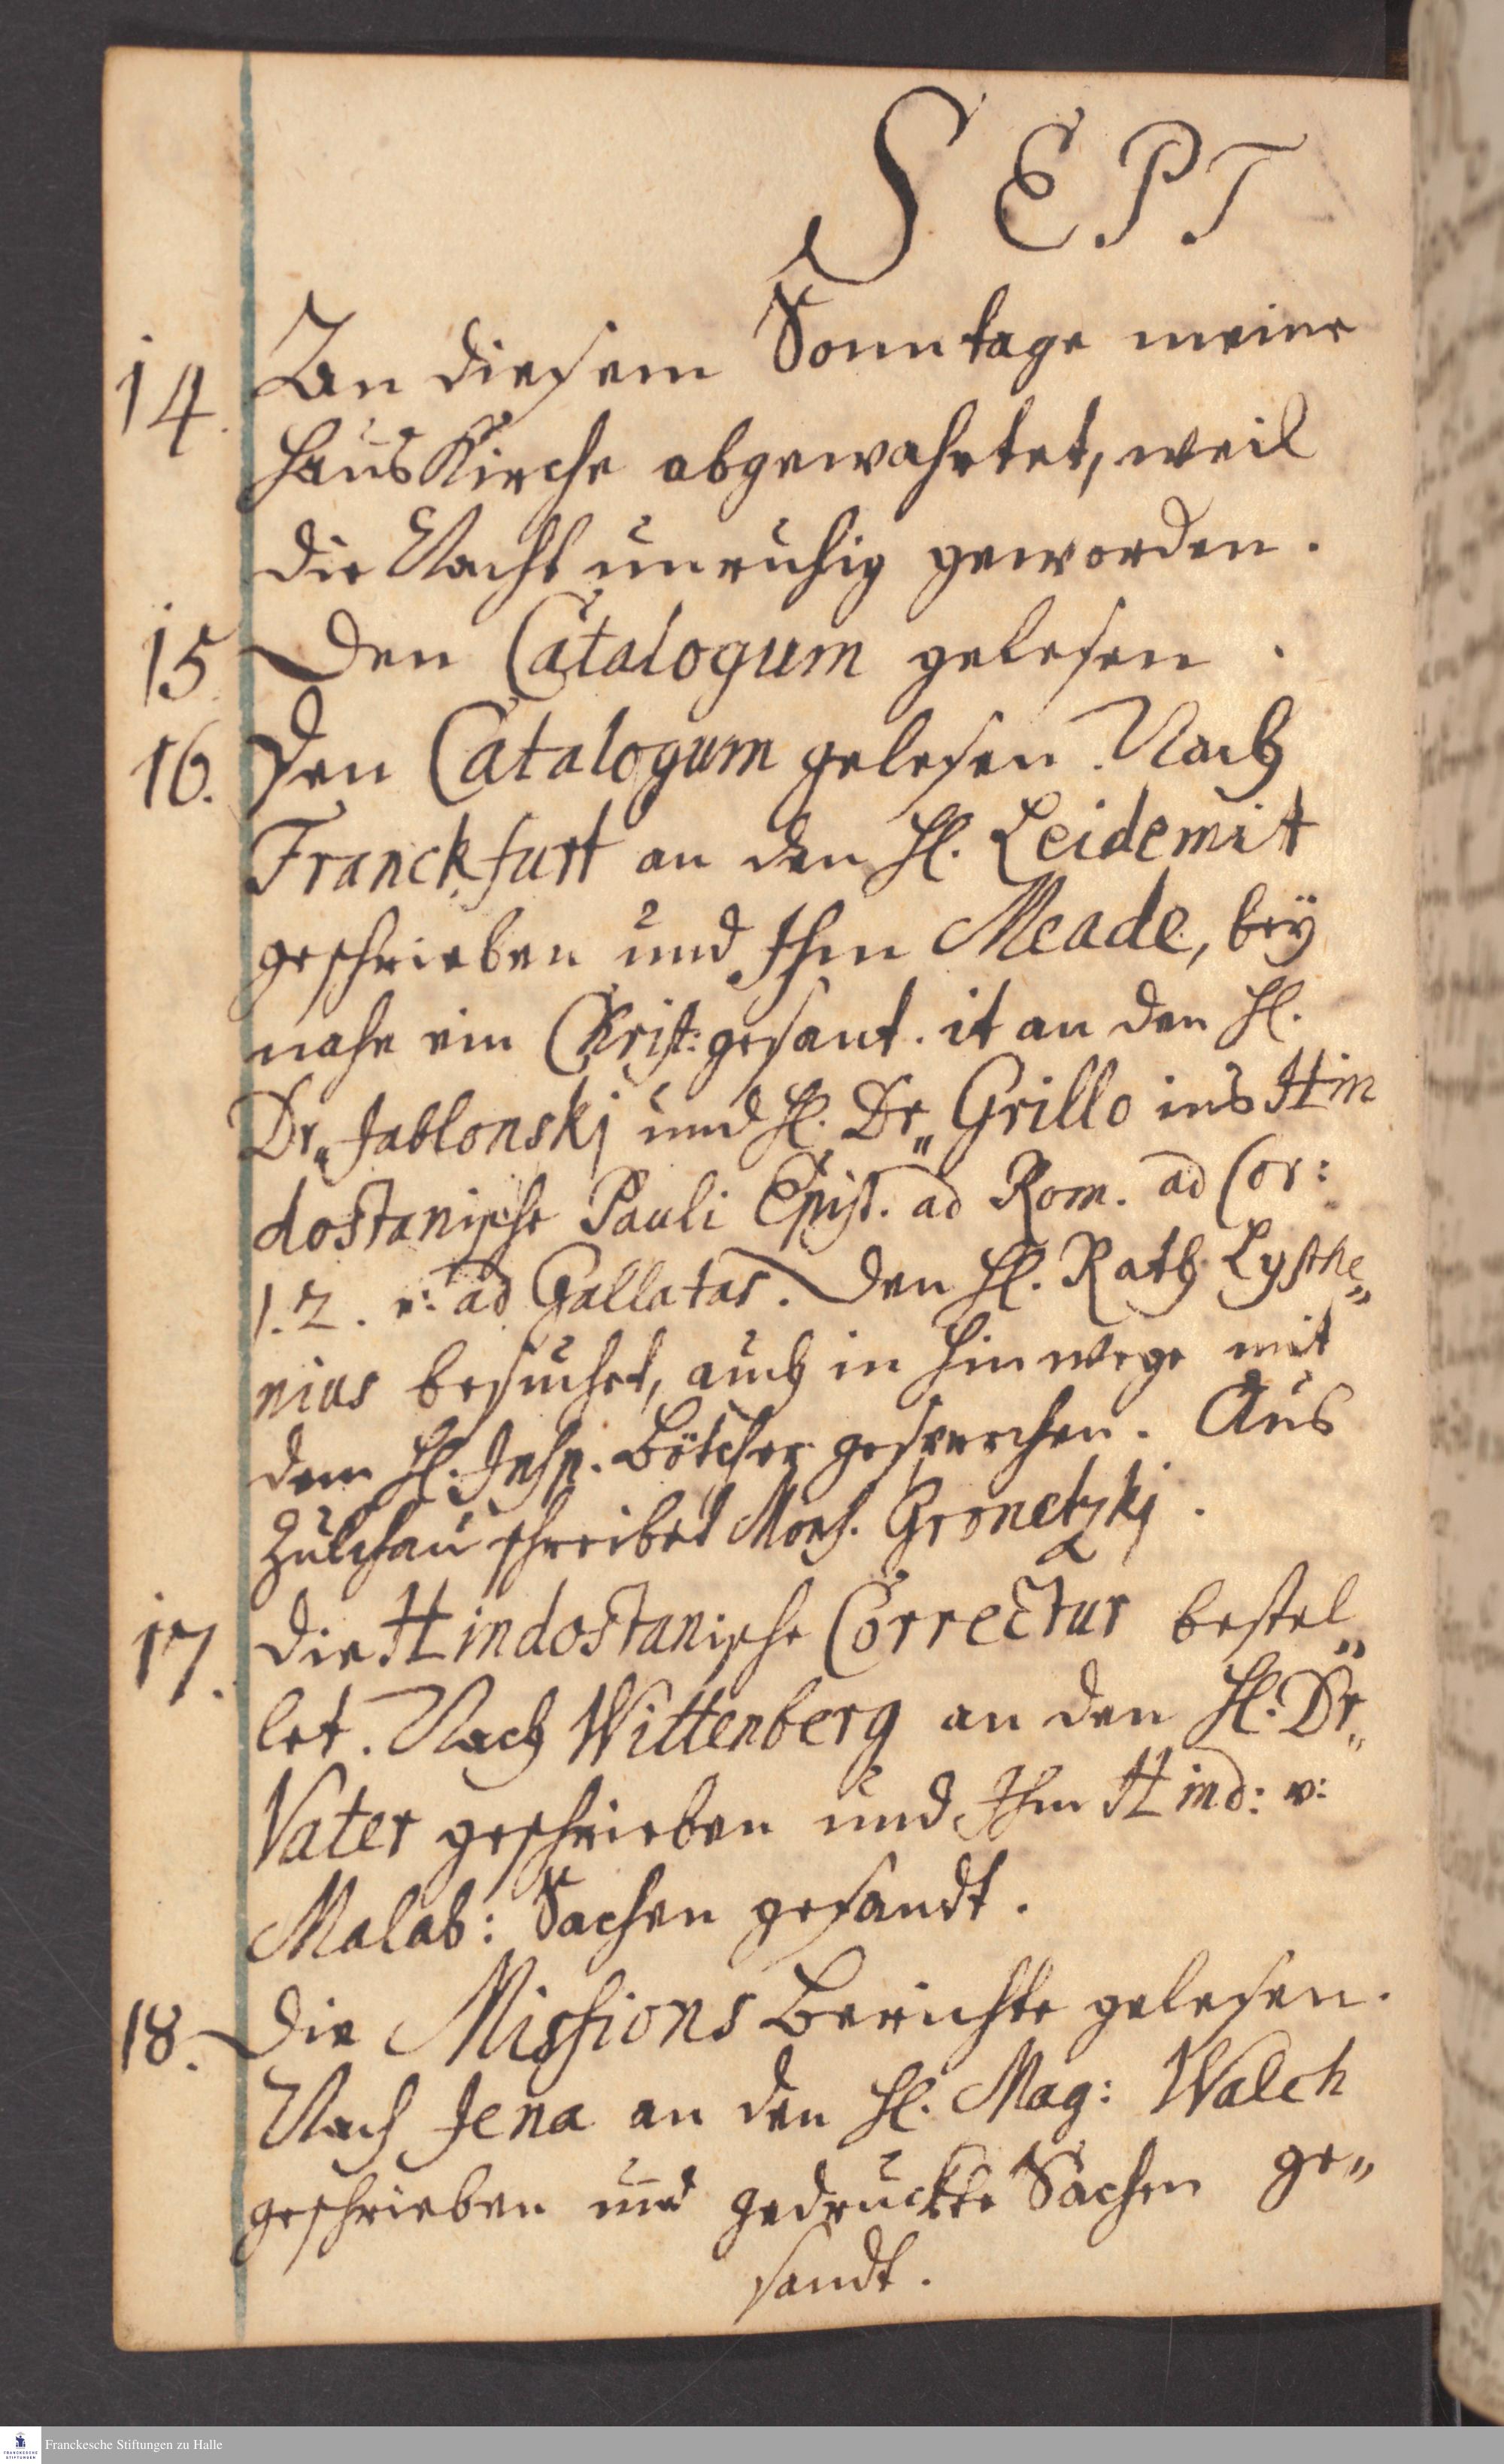 SEPT
14. An diesem Sonntage meine
Haus Kirche abgewahrtet, weil
die Nacht unruhig geworden.
15. Den Catalogum gelesen.
16. Den Catalogum gelesen. Nach
Franckfurt an den H. Leidemit
geschrieben und Ihm Meade, bey
nahe ein Christ: gesant. it an den H.
Dr„ Jablonskj und H. Dr„ Grillo ins Hin
dostanische Pauli Epist. ad Rom. ad Cor:
1. 2. u: ad Gallatas. Den H. Rath Lysthe„
nius besuchet, auch in Hinwege mit
dem H. Insp. Bötcher gesprochen. Aus
Zulchau schreibet Mons. Gronetzkj.
17. Die Hindostanische Correctur bestel„
let. Nach Wittenberg an den H. Dr„
Vater geschrieben und Ihm Hind: u:
Malab: Sachen gesandt.
18. Die Missions Berichte gelesen.
Nach Jena an den H. Mag: Walch
geschrieben und gedruckte Sachen ge„
sandt.
FRANCKESCHE
STIFTUNGEN
Franckesche Stiftungen zu Halle